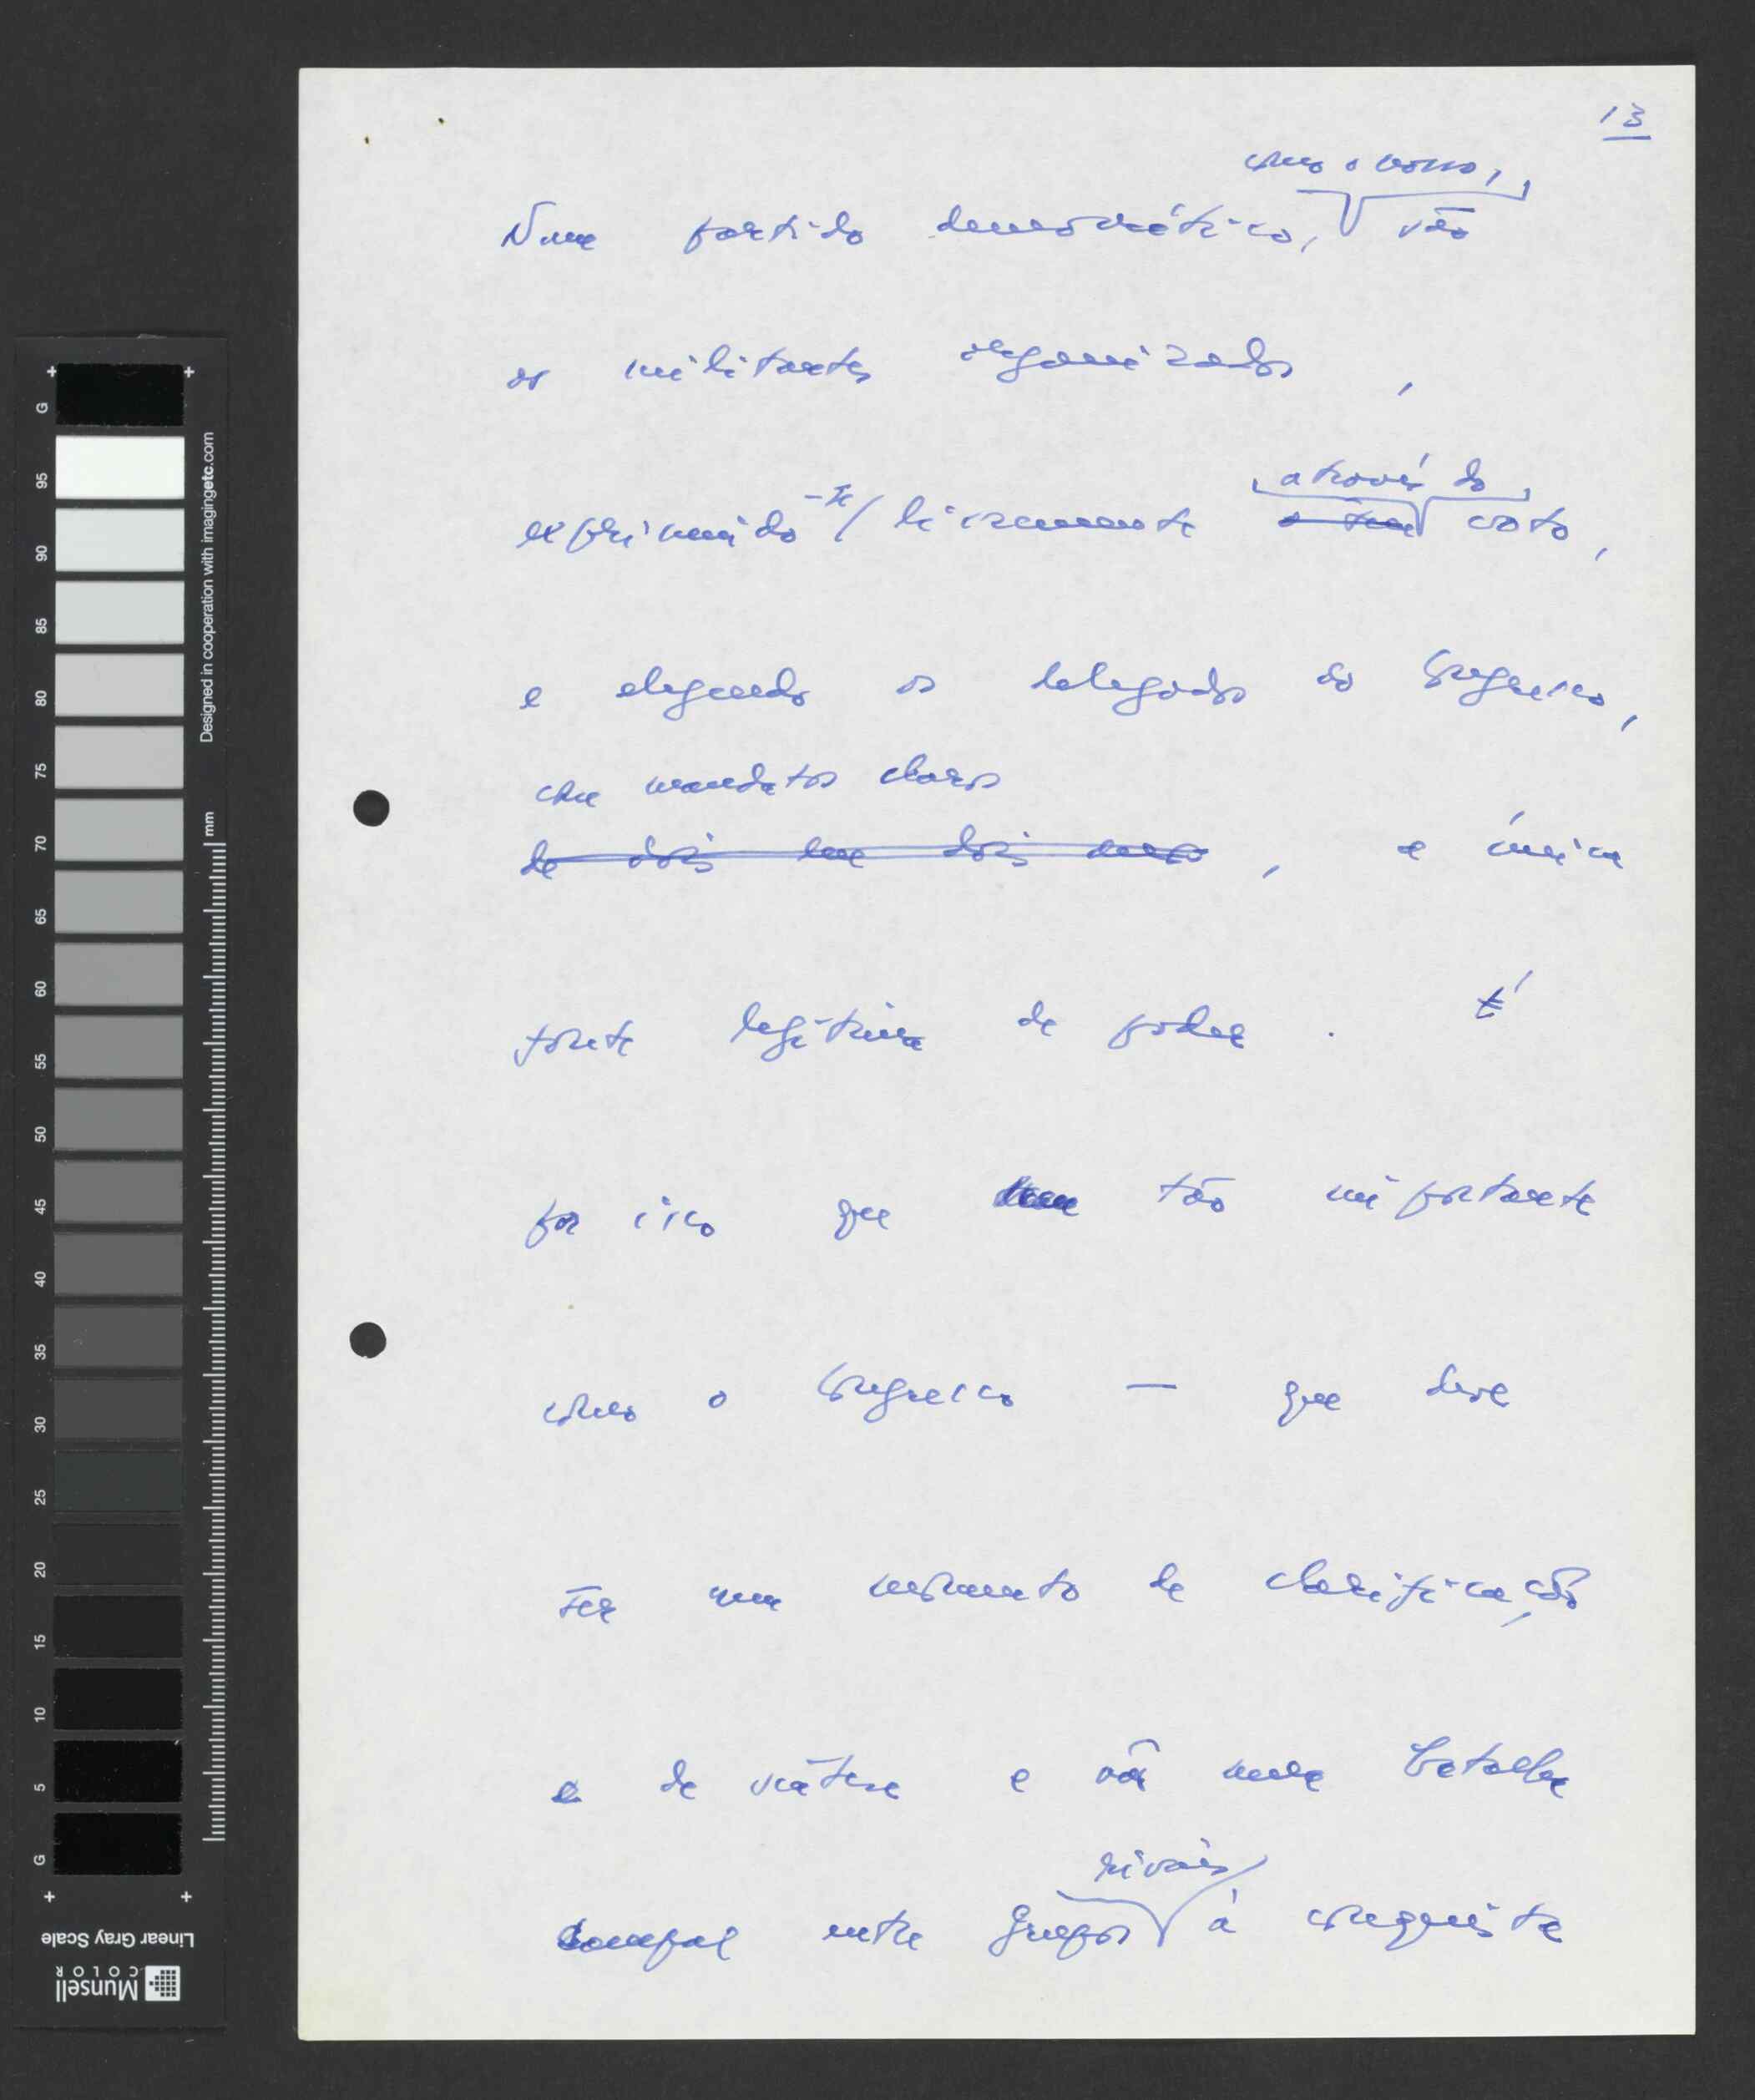 13
como o nosso,
Num partido democrático, são
os militantes organizados,
exprimindo-se / livremente
através do
o seu voto,
e elegendo os delegados ao Congresso,
com mandatos claros
de dois em dois anos, a única
fonte legítima de poder. É
por isso que tão importante
como o Congresso — que deve
ser um momento de clarificação
e de síntese e não uma batalha
campal entre grupos
rivais
à conquista
G 95 90 85 80 75 70 65 60 55 50 45 40 35 30 25 20 15 10 5 G
Designed in cooperation with imagingetc.com
mm
Linear Gray Scale
Munsell
COLOR